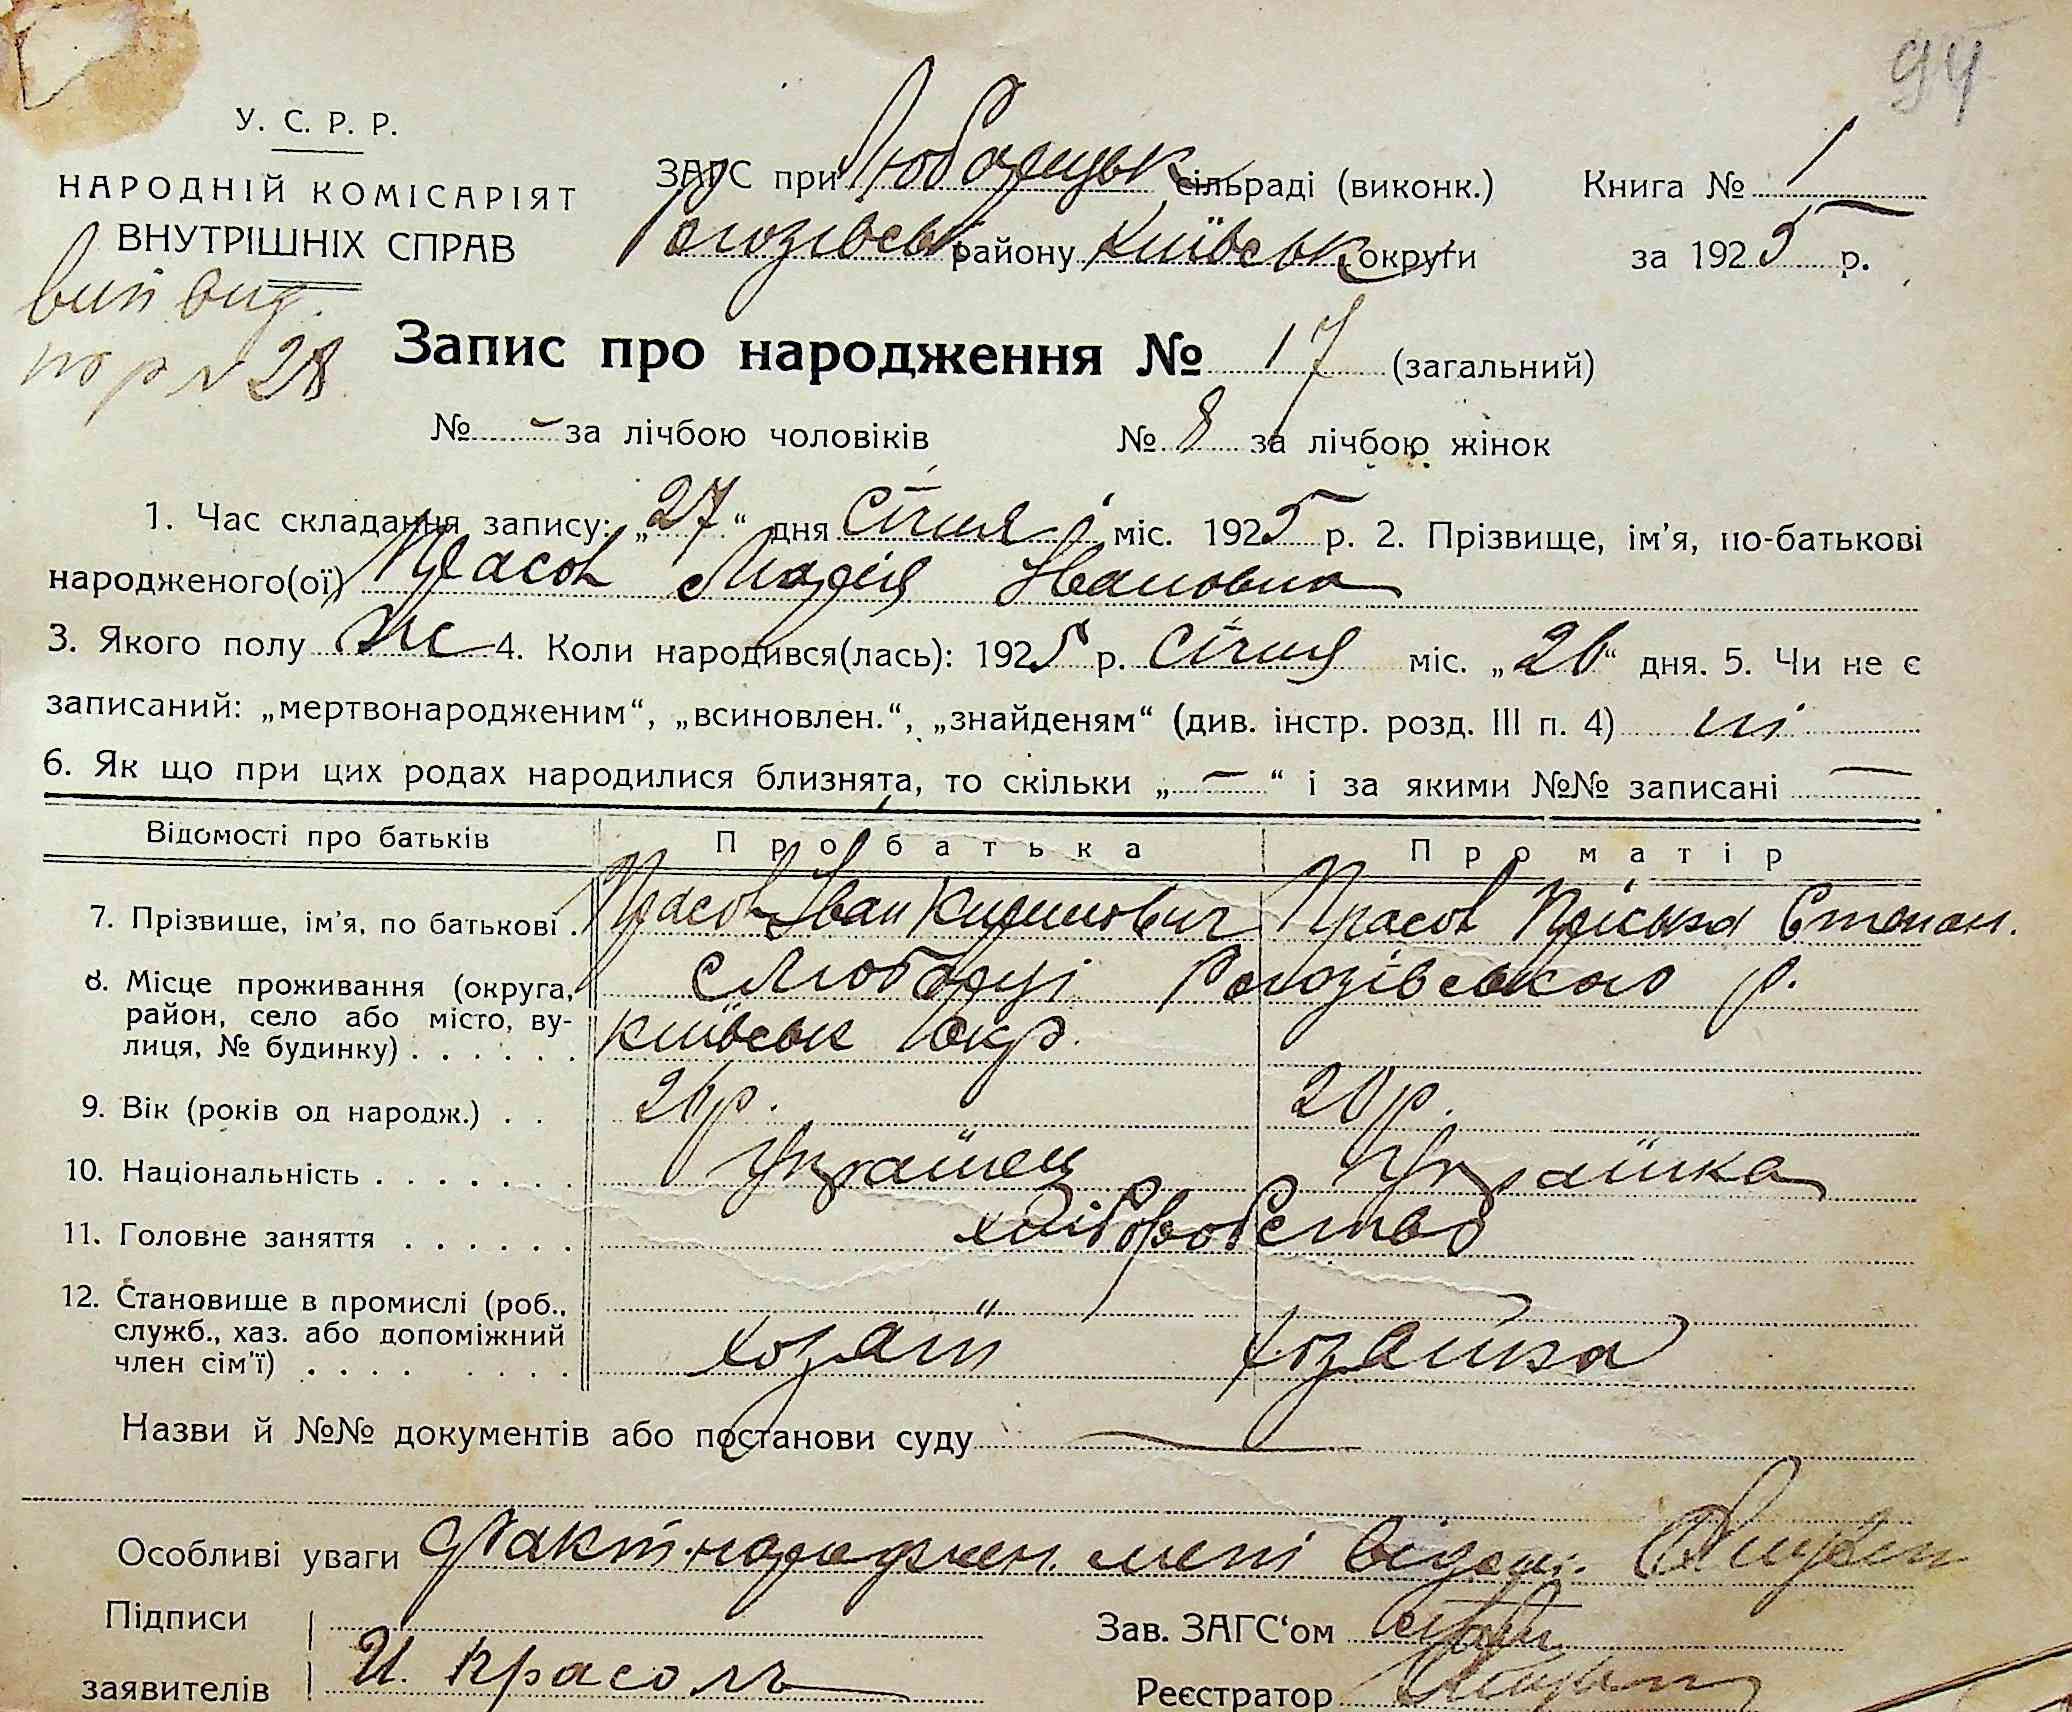 94
У. С. Р. Р.
НАРОДНІЙ КОМІСАРІЯТ
ВНУТРІШНІХ СПРАВ
вип вид.
по р № 28
ЗАГС при Любарецьк сільраді (виконк.)
Рогозівськ району Київськ округи
Книга № 1
за 1925 р.
Запис про народження № 17 (загальний)
№ - за лічбою чоловіків № 8 за лічбою жінок
1. Час складання запису: „27“ дня Січня міс. 1925 р. 2. Прізвище, ім'я, по-батькові
народженого(ої) Красол Марія Івановна
3. Якого полу ж 4. Коли народився(лась): 1925 р. Січня міс. „26“ дня. 5. Чи не є
записаний: „мертвонародженим“, „всиновлен.“, „знайденям“ (див. інстр. розд. III п. 4) ні
6. Як що при цих родах народилися близнята, то скільки „—“ і за якими №№ записані —
Відомості про батьків Про батька Про матір
7. Прізвище, ім'я, по батькові . Красол Іван Кирилович Красол Пріська Степан.
8. Місце проживання (округа, с Любарці Рогозівського р.
район, село або місто, ву-
лиця, № будинку) . . . . . . Київськ окр.
9. Вік (років од народж.) . . 26 р. 20 р.
10. Національність . . . . . . . Українец Українка
11. Головне заняття . . . . . . хліборобство
12. Становище в промислі (роб., "
служб., хаз. або допоміжний
член сім'ї) . . . . . . . . хозаїн хозаїка
Назви й №№ документів або постанови суду —
Особливі уваги Факт народжен. мені відом.
Підписи
заявителів И. Красоль
Зав. ЗАГС‘ом
Реєстратор